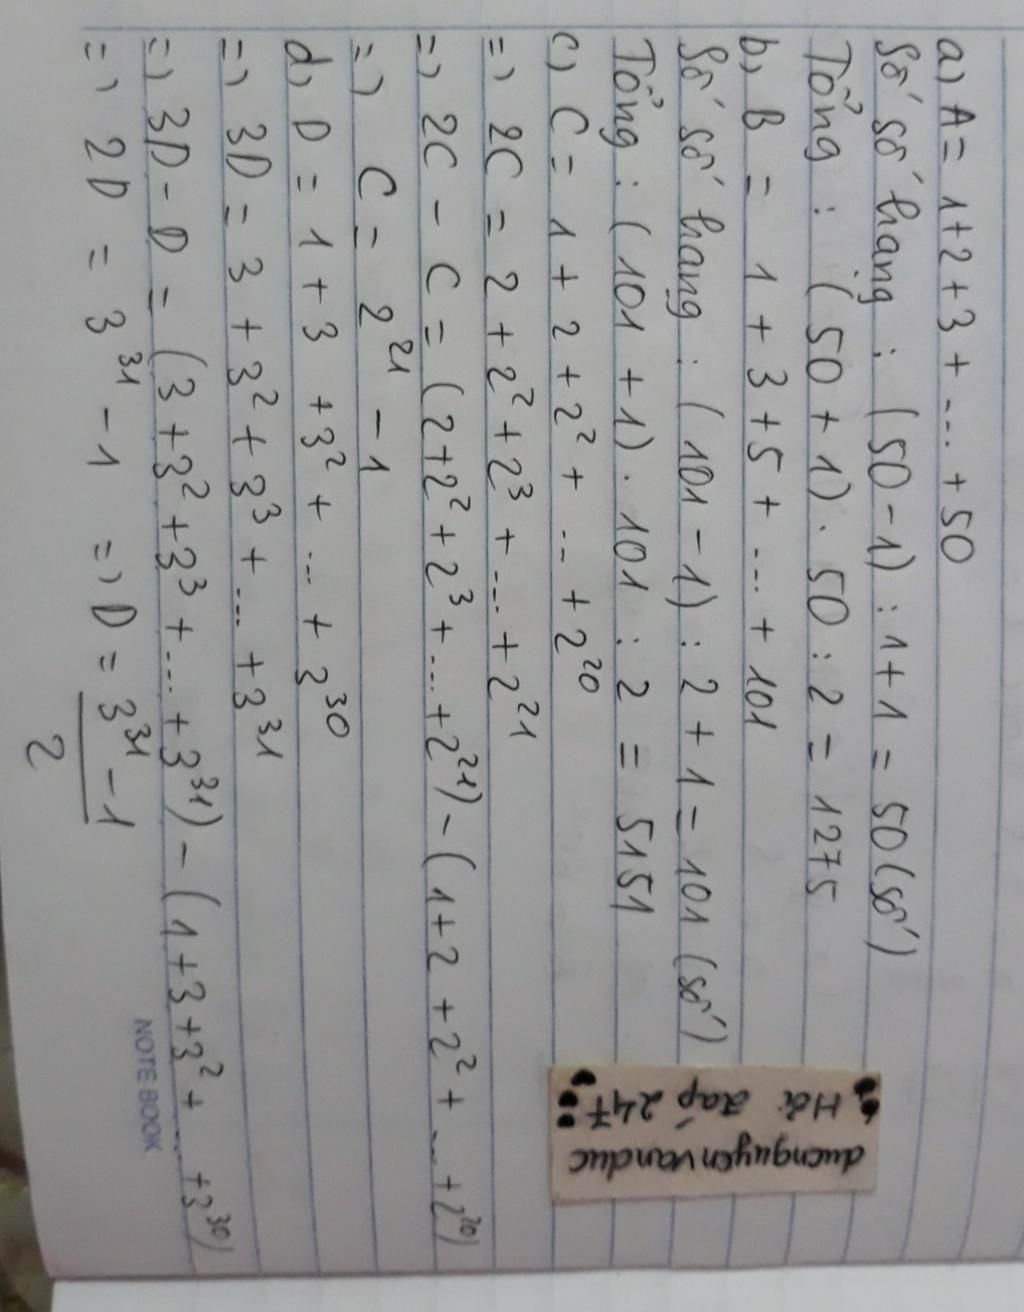 a) A = 1+2+3+....+50
Số số hạng : (50-1) : 1+1 = 50 (số)
Tổng : (50+1) . 50 : 2 = 1275
b) B = 1+3+5+....+101
Số số hạng : (101-1) : 2+1 = 101 (số)
Tổng : (101+1) . 101 : 2 = 5151
c) C = 1+2+2²+...+2²⁰
=) 2C = 2+2²+2³+....+2²¹
=) 2C - C = (2+2²+2³+....+2²¹) - (1+2+2²+...+2²⁰)
=) C = 2²¹ - 1
d) D = 1+3+3²+....+3³⁰
=) 3D = 3+3²+3³+....+3³¹
=) 3D - D = (3+3²+3³+....+3³¹) - (1+3+3²+....+3³⁰)
=) 2D = 3³¹ - 1 =) D = 3³¹ - 1
2
ducnguyenvanduc
Hỏi đáp 247
NOTE BOOK